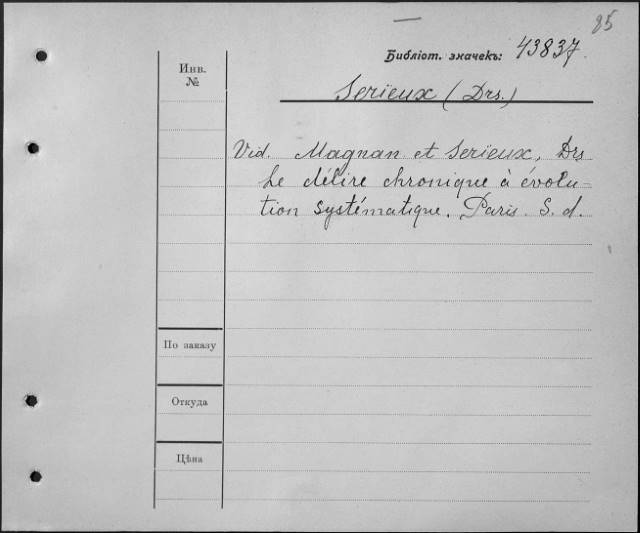 85
Библіот. значекъ: 43837.
Инв.
№
Serïeux (Drs.)
Vid. Magnan et Serïeux, Drs
Le délire chronique à évolu-
tion systématique. Paris. S. d.
По заказу
Откуда
Цѣна